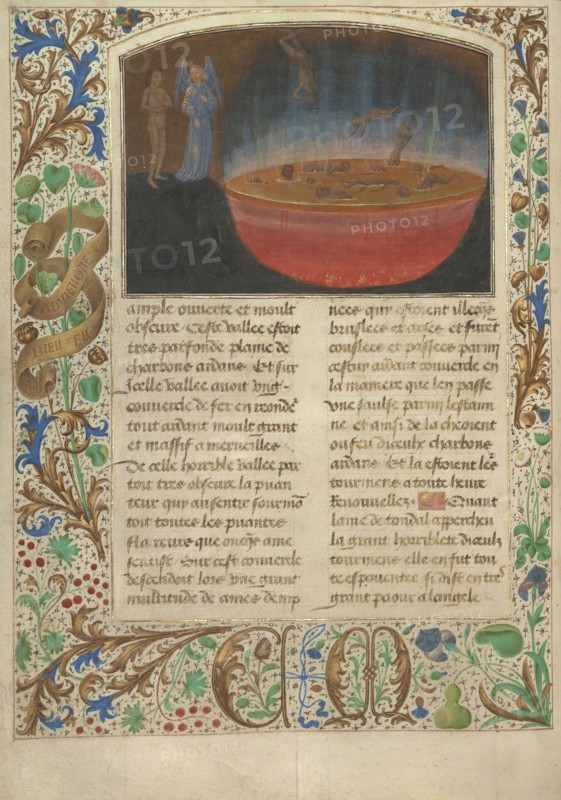 PHOTO12
PHOTO12
PHOTO12
PHOTO12
PHOTO12
ample ouverte et moult
obscure Ceste vallee estoit
tres parfonde plaine de
charbons ardans Et sur
Icelle vallee avoit vng
couvercle de fer en ronde
tout ardant moult grant
et massif a merveilles
De celle horrible vallee par
tout tres obscure la puan
teur quy au sentir sourmo
toit toutes les puantes
que oncqs ame
sentist Sur cest couvercle
descendoit lors vne grant
multitude de ames demp
nees quy estoient illecqs
bruslees et arses et furet
coulees et passees parmi
cestui ardant couvercle en
la maniere que len passe
vne saulse parmi lestami
ne et ainsi de la cheoient
ou feu diceulx charbons
ardans Et la estoient les
tourmens a toute heure
Renouvellez Quant
lame de tondal appercheu
la grant horriblete diceulx
tourmens elle en fut tou
te espouentee si dist en tre
grant paour a langele
CM
PHOTO12